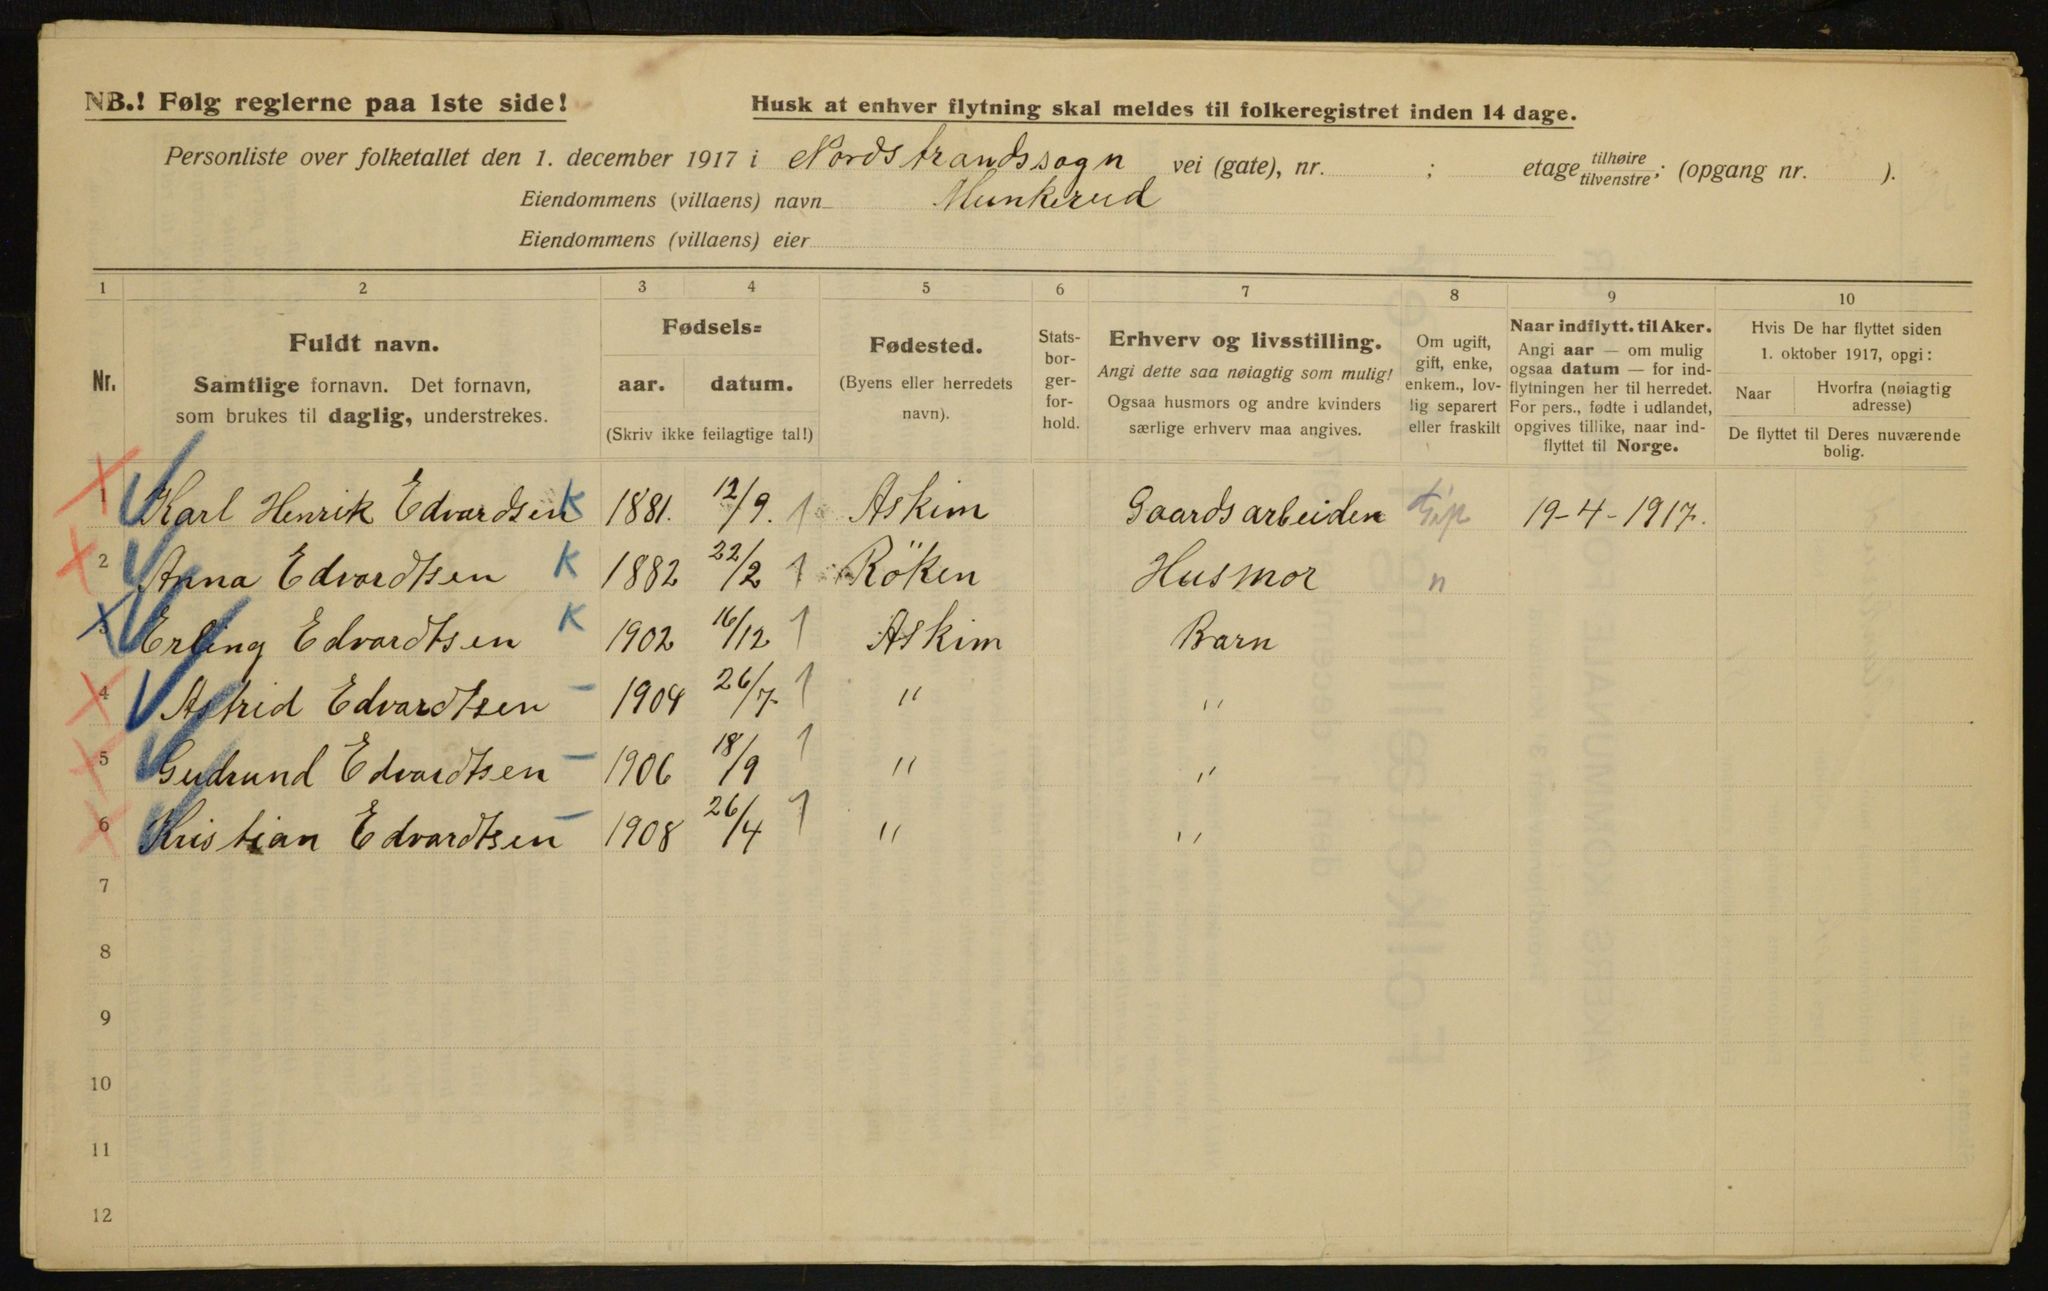 NB.! Følg reglerne paa 1ste side!
Husk at enhver flytning skal meldes til folkeregistret inden 14 dage.
Personliste over folketallet den 1. december 1917 i Nordstrandssogn vei (gate), nr. ; etage tilhøire tilvenstre; (opgang nr. ).
Eiendommens (villaens) navn Munkerud
Eiendommens (villaens) eier
1 2 3 4 5 6 7 8 9 10
Nr.
Fuldt navn.
Samtlige fornavn. Det fornavn,
som brukes til daglig, understrekes.
Fødsels=
aar. datum.
(Skriv ikke feilagtige tal!)
Fødested.
(Byens eller herredets
navn).
Stats-
bor-
ger-
for-
hold.
Erhverv og livsstilling.
Angi dette saa nøiagtig som mulig!
Ogsaa husmors og andre kvinders
særlige erhverv maa angives.
Om ugift,
gift, enke,
enkem., lov-
lig separert
eller fraskilt
Naar indflytt. til Aker.
Angi aar — om mulig
ogsaa datum — for ind-
flytningen her til herredet.
For pers., fødte i udlandet,
opgives tillike, naar ind-
flyttet til Norge.
Hvis De har flyttet siden
1. oktober 1917, opgi:
Naar
Hvorfra (nøiagtig
adresse)
De flyttet til Deres nuværende
bolig.
1 Karl Henrik Edvardsen K 1881. 12/9. 1 Askim Gaardsarbeider Gift 19-4-1917.
2 Anna Edvardtsen K 1882 22/2 1 Röken Husmor "
3 Erling Edvardtsen K 1902 16/12 1 Askim Barn
4 Astrid Edvardtsen – 1904 26/7 1 " "
5 Gudrund Edvardtsen – 1906 18/9 1 " "
6 Kristian Edvardtsen – 1908 26/4 1 " "
7
8
9
10
11
12